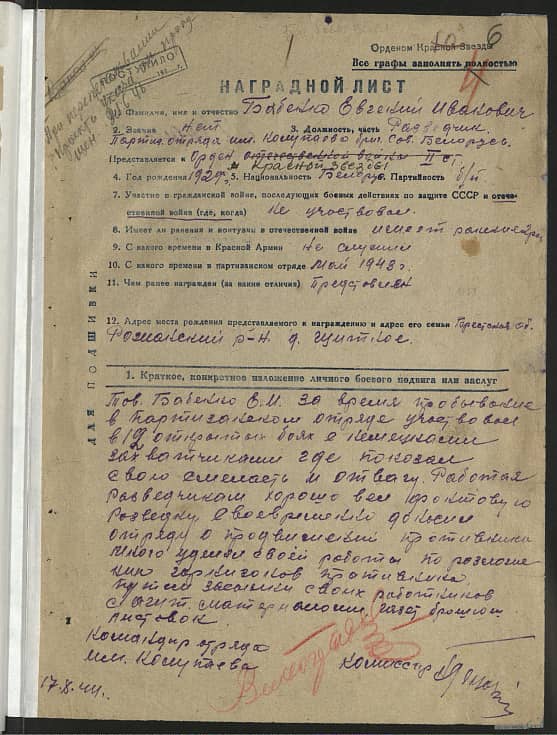 6
Орденом Красной Звезды
Все графы заполнять полностью
ПОСТУПИЛО
НАГРАДНОЙ ЛИСТ
1. Фамилия, имя и отчество Бабенко Евгений Иванович
2. Звание нет 3. Должность, часть Разведчик
Партиз. отряда им. Котовского бриг. Сов. Белорусь
Представляется к Орден отечественной войны II ст.
Красной звезды
4. Год рождения 5. Национальность Белорус. Партийность б/п
7. Участие в гражданской войне, последующих боевых действиях по защите СССР и отече-
ственной войне (где, когда) Не участвовал
8. Имеет ли ранения и контузии в отечественной войне имеет ранение
9. С какого времени в Красной Армии Не служил
10. С какого времени в партизанском отряде Май 1943 г.
11. Чем ранее награжден (за какие отличия) Представлен
12. Адрес места рождения представляемого к награждению и адрес его семьи Брестская об.
р-н д.
ДЛЯ ПОДШИВКИ
1. Краткое, конкретное изложение личного боевого подвига или заслуг
Тов. Бабенко Е.И. за время пребывание
в партизанском отряде участвовал
в 12 открытых боях с немецкими
захватчиками где показал
свою смелость и отвагу. Работая
разведчиком хорошо вел
разведку, своевременно доносил
отряду о продвижений противника
много уделял своей работы по разложе
нию гарнизонов противника
путем засылки своих работников
с агит. материалами газет брошюр
листовок.
Командир отряда
им.
Комиссар
17.8.44.